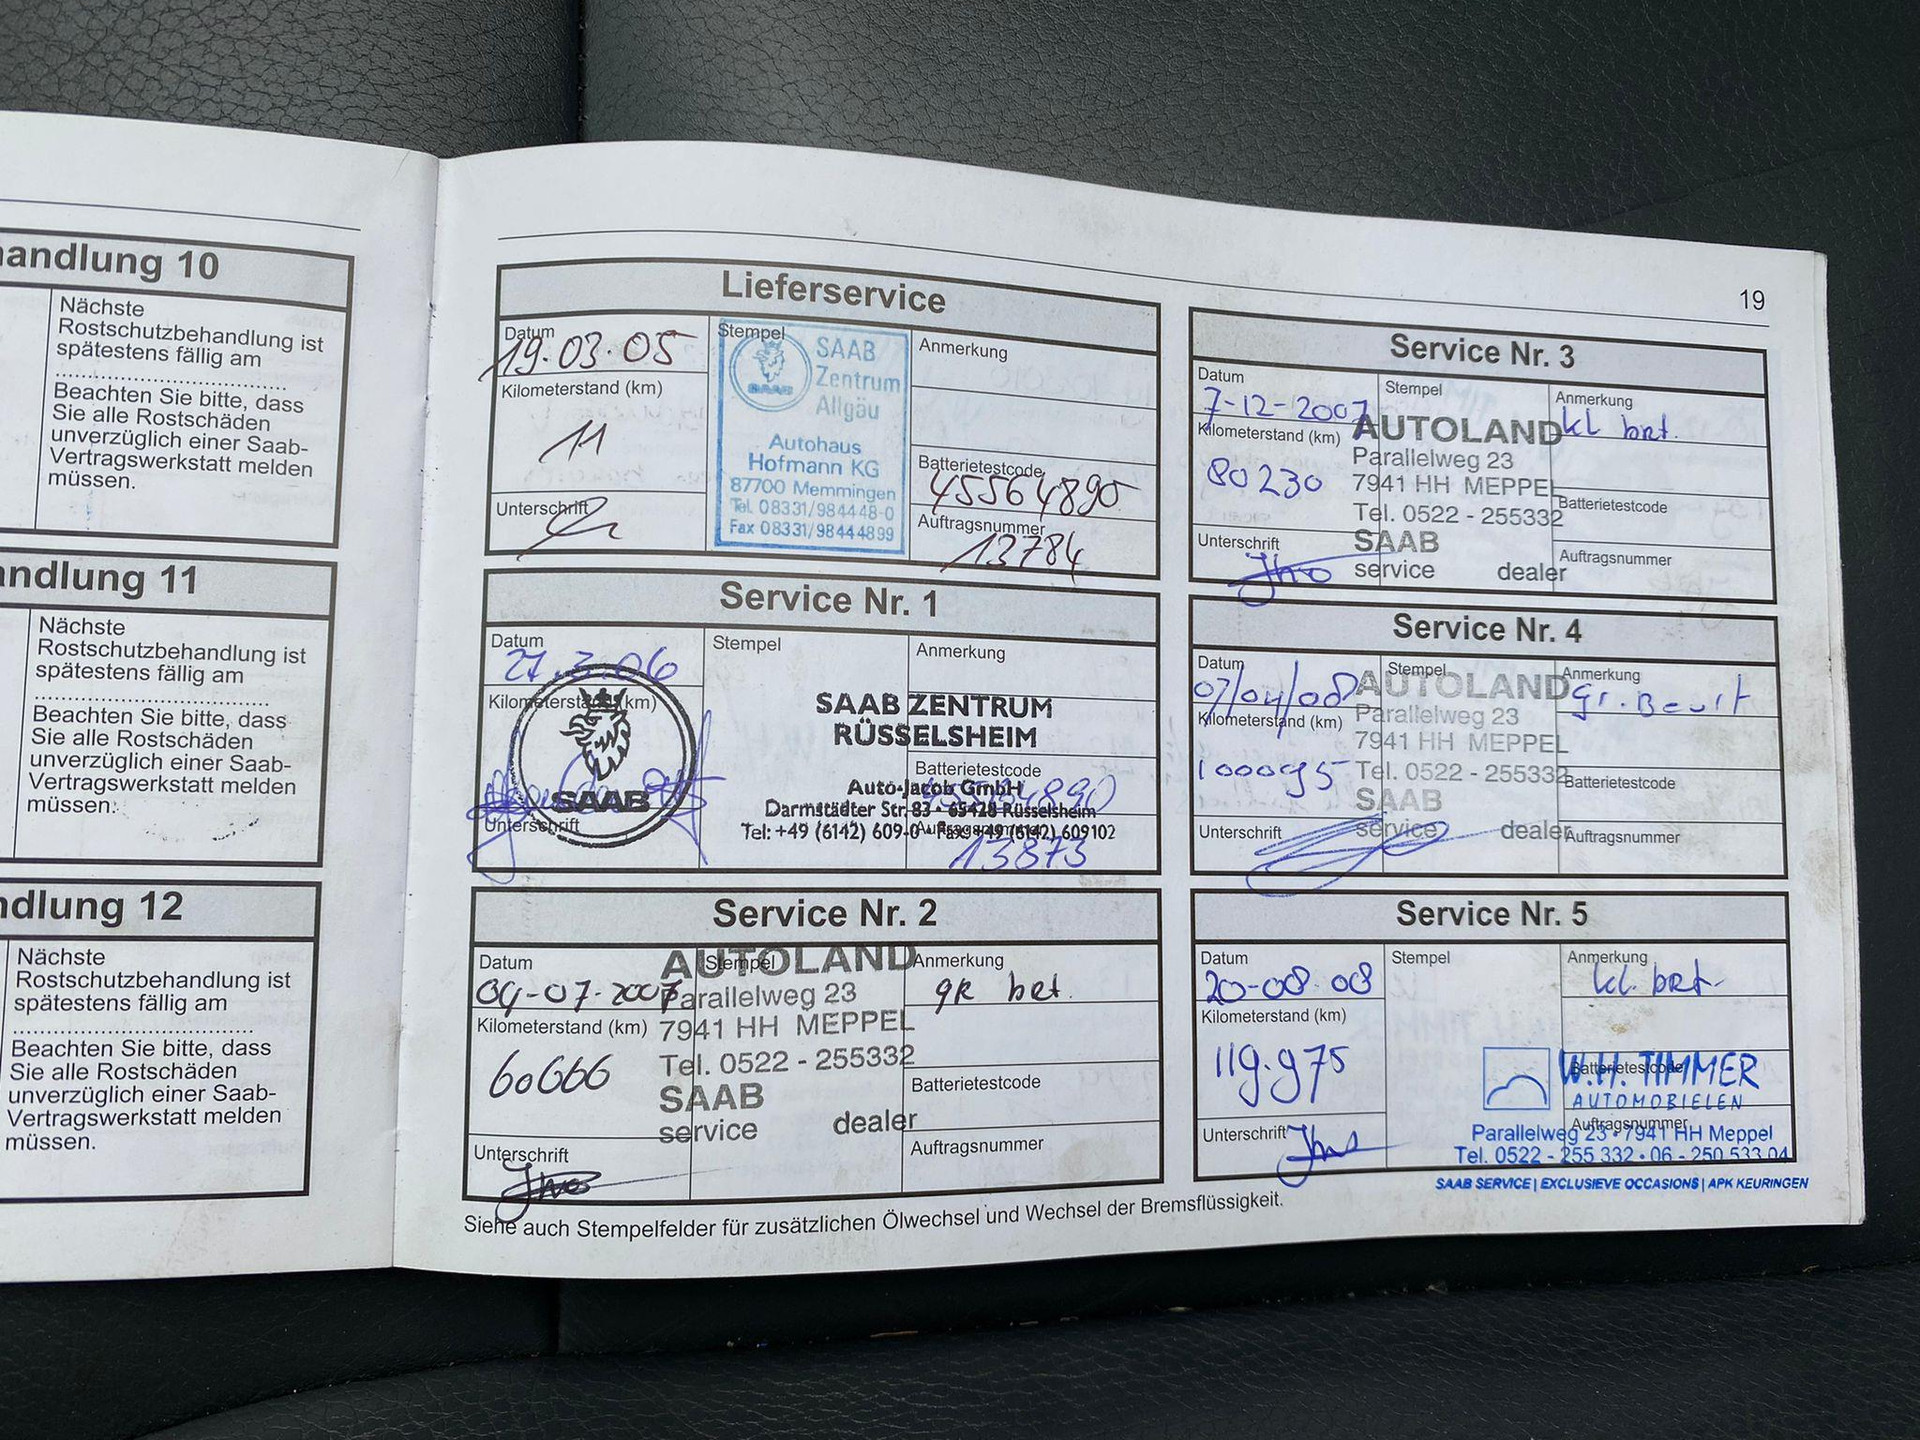 handlung 10
Nächste
Rostschutzbehandlung ist
spätestens fällig am
Beachten Sie bitte, dass
Sie alle Rostschäden
unverzüglich einer Saab-
Vertragswerkstatt melden
müssen.
ndlung 11
Nächste
Rostschutzbehandlung ist
spätestens fällig am
Beachten Sie bitte, dass
Sie alle Rostschäden
unverzüglich einer Saab-
Vertragswerkstatt melden
müssen.
ndlung 12
Nächste
Rostschutzbehandlung ist
spätestens fällig am
Beachten Sie bitte, dass
Sie alle Rostschäden
unverzüglich einer Saab-
Vertragswerkstatt melden
müssen.
19
Lieferservice
Datum
19.03.05
Kilometerstand (km)
11
Unterschrift
Stempel
SAAB
SAAB
Zentrum
Allgäu
Autohaus
Hofmann KG
87700 Memmingen
Tel. 08331/984448-0
Fax 08331/98444899
Anmerkung
Batterietestcode
45564890
Auftragsnummer
13784
Service Nr. 1
Datum
27.3.06
Kilometerstand (km)
SAAB
Unterschrift
Stempel
SAAB ZENTRUM
RÜSSELSHEIM
Auto-Jacob GmbH
Darmstädter Str. 83 • 65428 Rüsselsheim
Tel: +49 (6142) 609-0 • Fax: +49 (6142) 609102
Anmerkung
Batterietestcode
Auftragsnummer
13873
Service Nr. 2
Datum
04-07-2007
Kilometerstand (km)
60666
Unterschrift
Stempel
AUTOLAND
Parallelweg 23
7941 HH MEPPEL
Tel. 0522 - 255332
SAAB
service dealer
Anmerkung
gr bet.
Batterietestcode
Auftragsnummer
Service Nr. 3
Datum
7-12-2007
Kilometerstand (km)
80230
Unterschrift
Stempel
AUTOLAND
Parallelweg 23
7941 HH MEPPEL
Tel. 0522 - 255332
SAAB
service dealer
Anmerkung
kl brt.
Batterietestcode
Auftragsnummer
Service Nr. 4
Datum
07/04/08
Kilometerstand (km)
100095
Unterschrift
Stempel
AUTOLAND
Parallelweg 23
7941 HH MEPPEL
Tel. 0522 - 255332
SAAB
service dealer
Anmerkung
gr. Beurt
Batterietestcode
Auftragsnummer
Service Nr. 5
Datum
20-08-08
Kilometerstand (km)
119.975
Unterschrift
Stempel
Anmerkung
kl. brt.
Batterietestcode
Auftragsnummer
W.H. TIMMER
AUTOMOBIELEN
Parallelweg 23 • 7941 HH Meppel
Tel. 0522 - 255 332 • 06 - 250 533 04
SAAB SERVICE | EXCLUSIEVE OCCASIONS | APK KEURINGEN
Siehe auch Stempelfelder für zusätzlichen Ölwechsel und Wechsel der Bremsflüssigkeit.